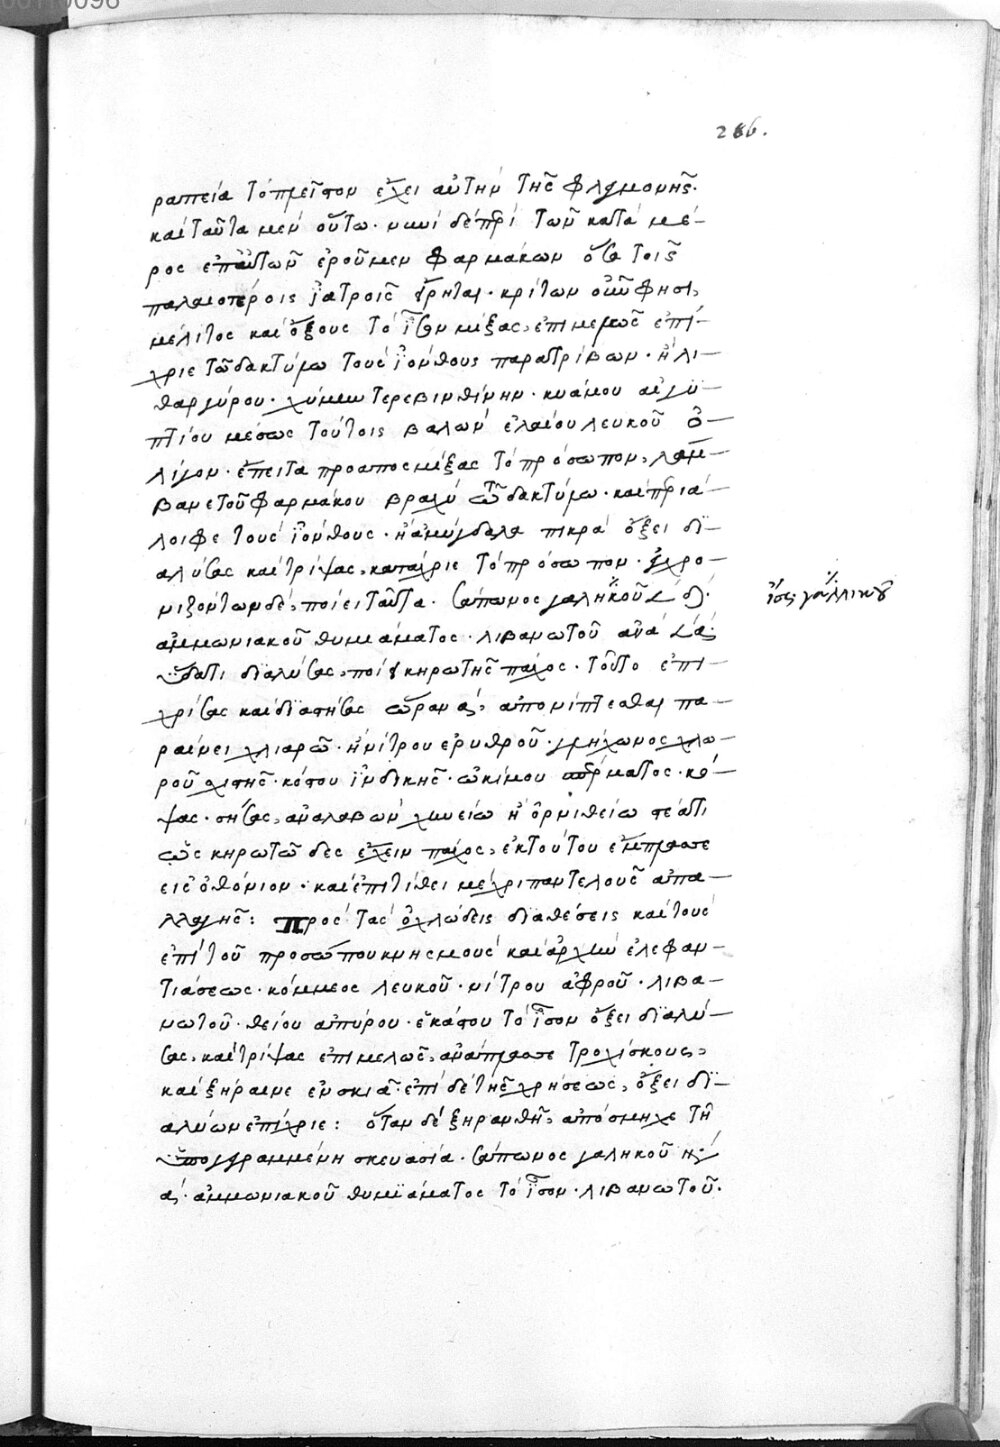 266.
ραπεία τὸ πλεῖστον ἔχει αὐτὴν τῆς φλεγμονῆς·
καὶ ταῦτα μὲν οὕτω· νυνὶ δὲ περὶ τῶν κατὰ μέ-
ρος ἐπ' αὐτῶν ἐροῦμεν φαρμάκων ὅσα τοῖς
παλαιοτέροις ἰατροῖς εὕρηται· κρίτων οὖν φησι,
μέλιτος καὶ ὄξους τὸ ἴσον μίξας, ἐπιμελῶς ἐπί-
χριε τῶ δακτύλω τοὺς ἰόνθους παρατρίβων· ἢ λι-
θαργύρου· τερεβινθίνην· κυάμου αἰγυ-
πτίου μέσως τούτοις βαλὼν ἐλαίου λευκοῦ ὀ-
λίγον· ἔπειτα προαποσμήξας τὸ πρόσωπον, λάμ-
βανε τοῦ φαρμάκου βραχὺ τῶ δακτύλω· καὶ περιά-
λοιφε τοὺς ἰόνθους· ἢ ἀμύγδαλα πικρὰ ὄξει δι-
αλύσας καὶ τρίψας, κατάχριε τὸ πρόσωπον· χρο-
νιζόντων δὲ, ποίει ταῦτα· σάπωνος γαληκοῦ
ἴσως γαλλικοῦ
ἀμμωνιακοῦ θυμιάματος· λιβανωτοῦ ἀνὰ
ὕδατι διαλύσας, ποίει κηρωτῆς πάχος· τοῦτο ἐπι-
χρίσας καὶ διαστήσας ὥραν α, ἀπονίπτεσθαι πα-
ραίνει χλιαρῶ· ἢ νίτρου ἐρυθροῦ· χλω-
ροῦ κόστου ἰνδικῆς· ὠκίμου σπέρματος· κό-
ψας· σήσας, ἀναλαβὼν χηνείω ἢ ὀρνιθείω στέατι
ὡς κηρωτῶδες ἔχειν πάχος, ἐκ τούτου ἔμπλασσε
εἰς ὀθόνιον· καὶ ἐπιτίθει μέχρι παντελοῦς ἀπα-
λλαγῆς: Πρὸς τὰς ὀχλώδεις διαθέσεις καὶ τοὺς
ἐπὶ τοῦ προσώπου κνησμοὺς καὶ ἀρχὴν ἐλεφαν-
τιάσεως· κόμμεος λευκοῦ· νίτρου ἀφροῦ· λιβα-
νωτοῦ· θείου ἀπύρου· ἑκάστου τὸ ἴσον ὄξει διαλύ-
σας, καὶ τρίψας ἐπιμελῶς, ἀνάπλασσε τροχίσκους,
καὶ ξήραινε ἐν σκιᾶ· ἐπὶ δὲ τῆς χρήσεως, ὄξει δι-
αλύων ἐπίχριε: ὅταν δὲ ξηρανθῆ, ἀπόσμηχε τῆ
ὑπογεγραμμένη σκευασία· σάπωνος γαληκοῦ
ἀμμωνιακοῦ θυμιάματος τὸ ἴσον· λιβανωτοῦ·